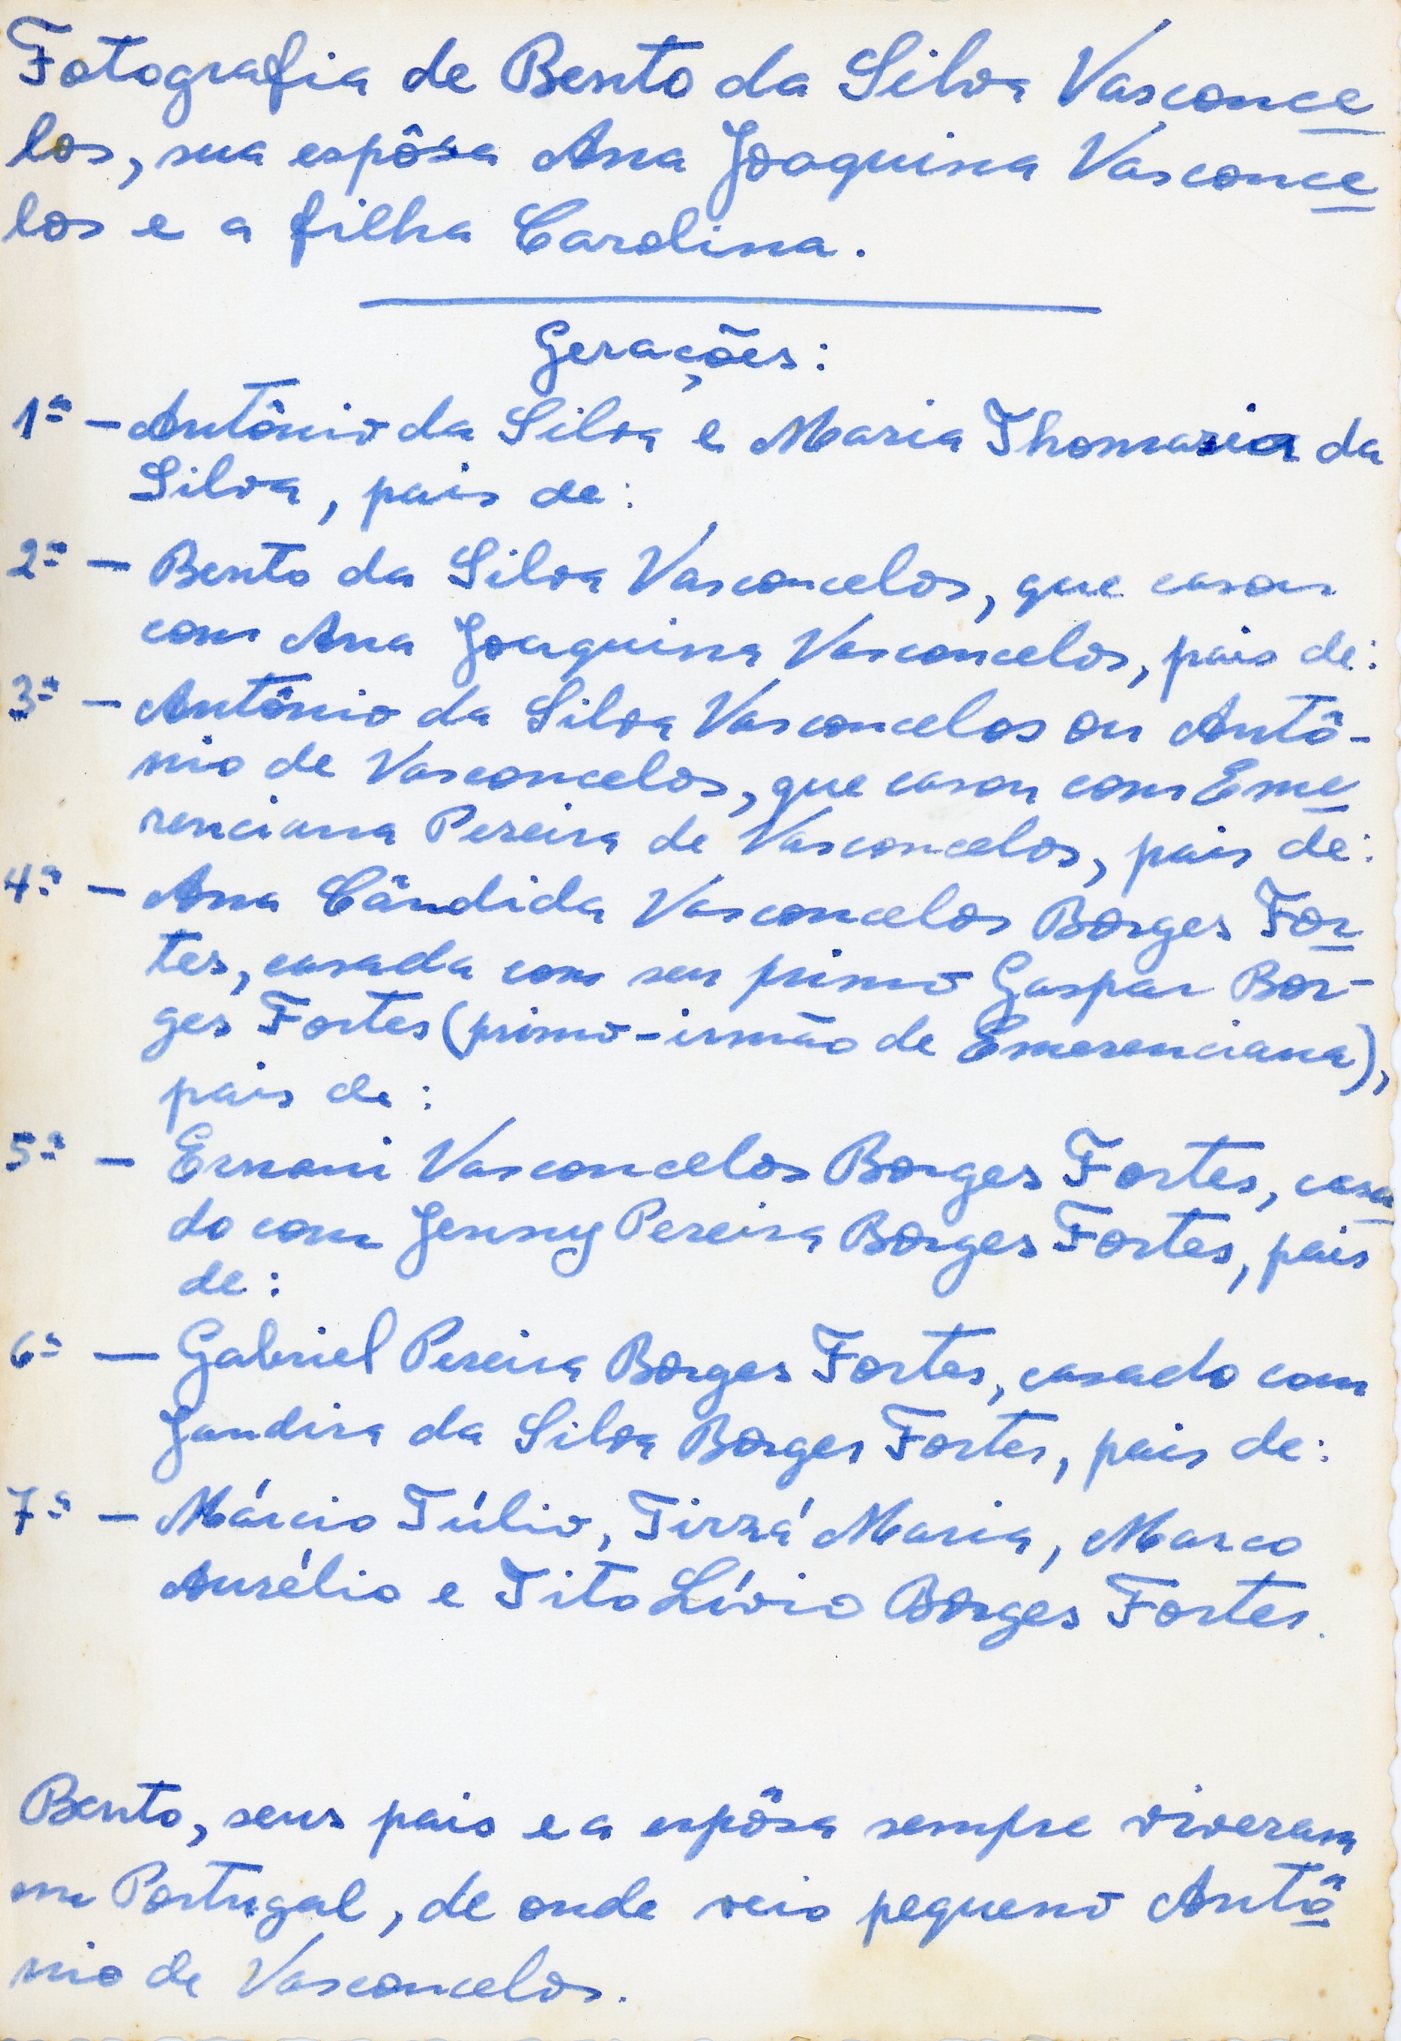 Fotografia de Bento da Silva Vasconce
los, sua espôsa Ana Joaquina Vasconce
los e a filha Carolina.
Gerações:
1ª - Antônio da Silva e Maria Thomasia da
Silva, pais de:
2ª - Bento da Silva Vasconcelos, que casou
com Ana Joaquina Vasconcelos, pais de:
3ª - Antônio da Silva Vasconcelos ou Antô-
nio de Vasconcelos, que casou com Eme
renciana Pereira de Vasconcelos, pais de:
4ª - Ana Cândida Vasconcelos Borges For
tes, casada com seu primo Gaspar Bor-
ges Fortes (primo-irmão de Emerenciana),
pais de:
5ª - Ernani Vasconcelos Borges Fortes, casa
do com Jenny Pereira Borges Fortes, pais
de:
6ª - Gabriel Pereira Borges Fortes, casado com
Jandira da Silva Borges Fortes, pais de:
7ª - Márcio Túlio, Tirzá Maria, Marco
Aurélio e Tito Lívio Borges Fortes.
Bento, seus pais e a espôsa sempre viveram
em Portugal, de onde veio pequeno Antô
nio de Vasconcelos.